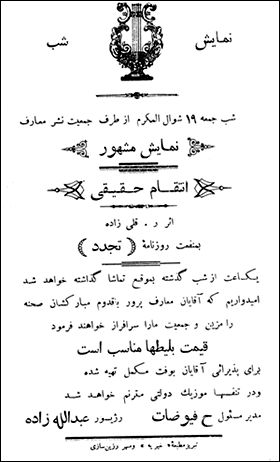 نمایش شب
شب جمعه ۱۹ شوال المکرم از طرف جمعیت نشر معارف
نمایش مشهور
انتقام حقیقی
اثر ر . قلی زاده
بمنفعت روزنامهٔ ( تجدد )
یکساعت از شب گذشته بموقع تماشا گذاشته خواهد شد
امیدواریم که آقایان معارف پرور باقدوم مبارکشان صحنه
را مزین و جمعیت مارا سرافراز خواهند فرمود
قیمت بلیطها مناسب است
برای پذیرائی آقایان بوفت مکمل تهیه شده
ودر تنفسها موزیک دولتی مترنم خواهد شد
مدیر مسئول ح فیوضات رژیسور عبدالله زاده
تبریز مطبعهٔ « خیریه » ومهر رزین‌سازی